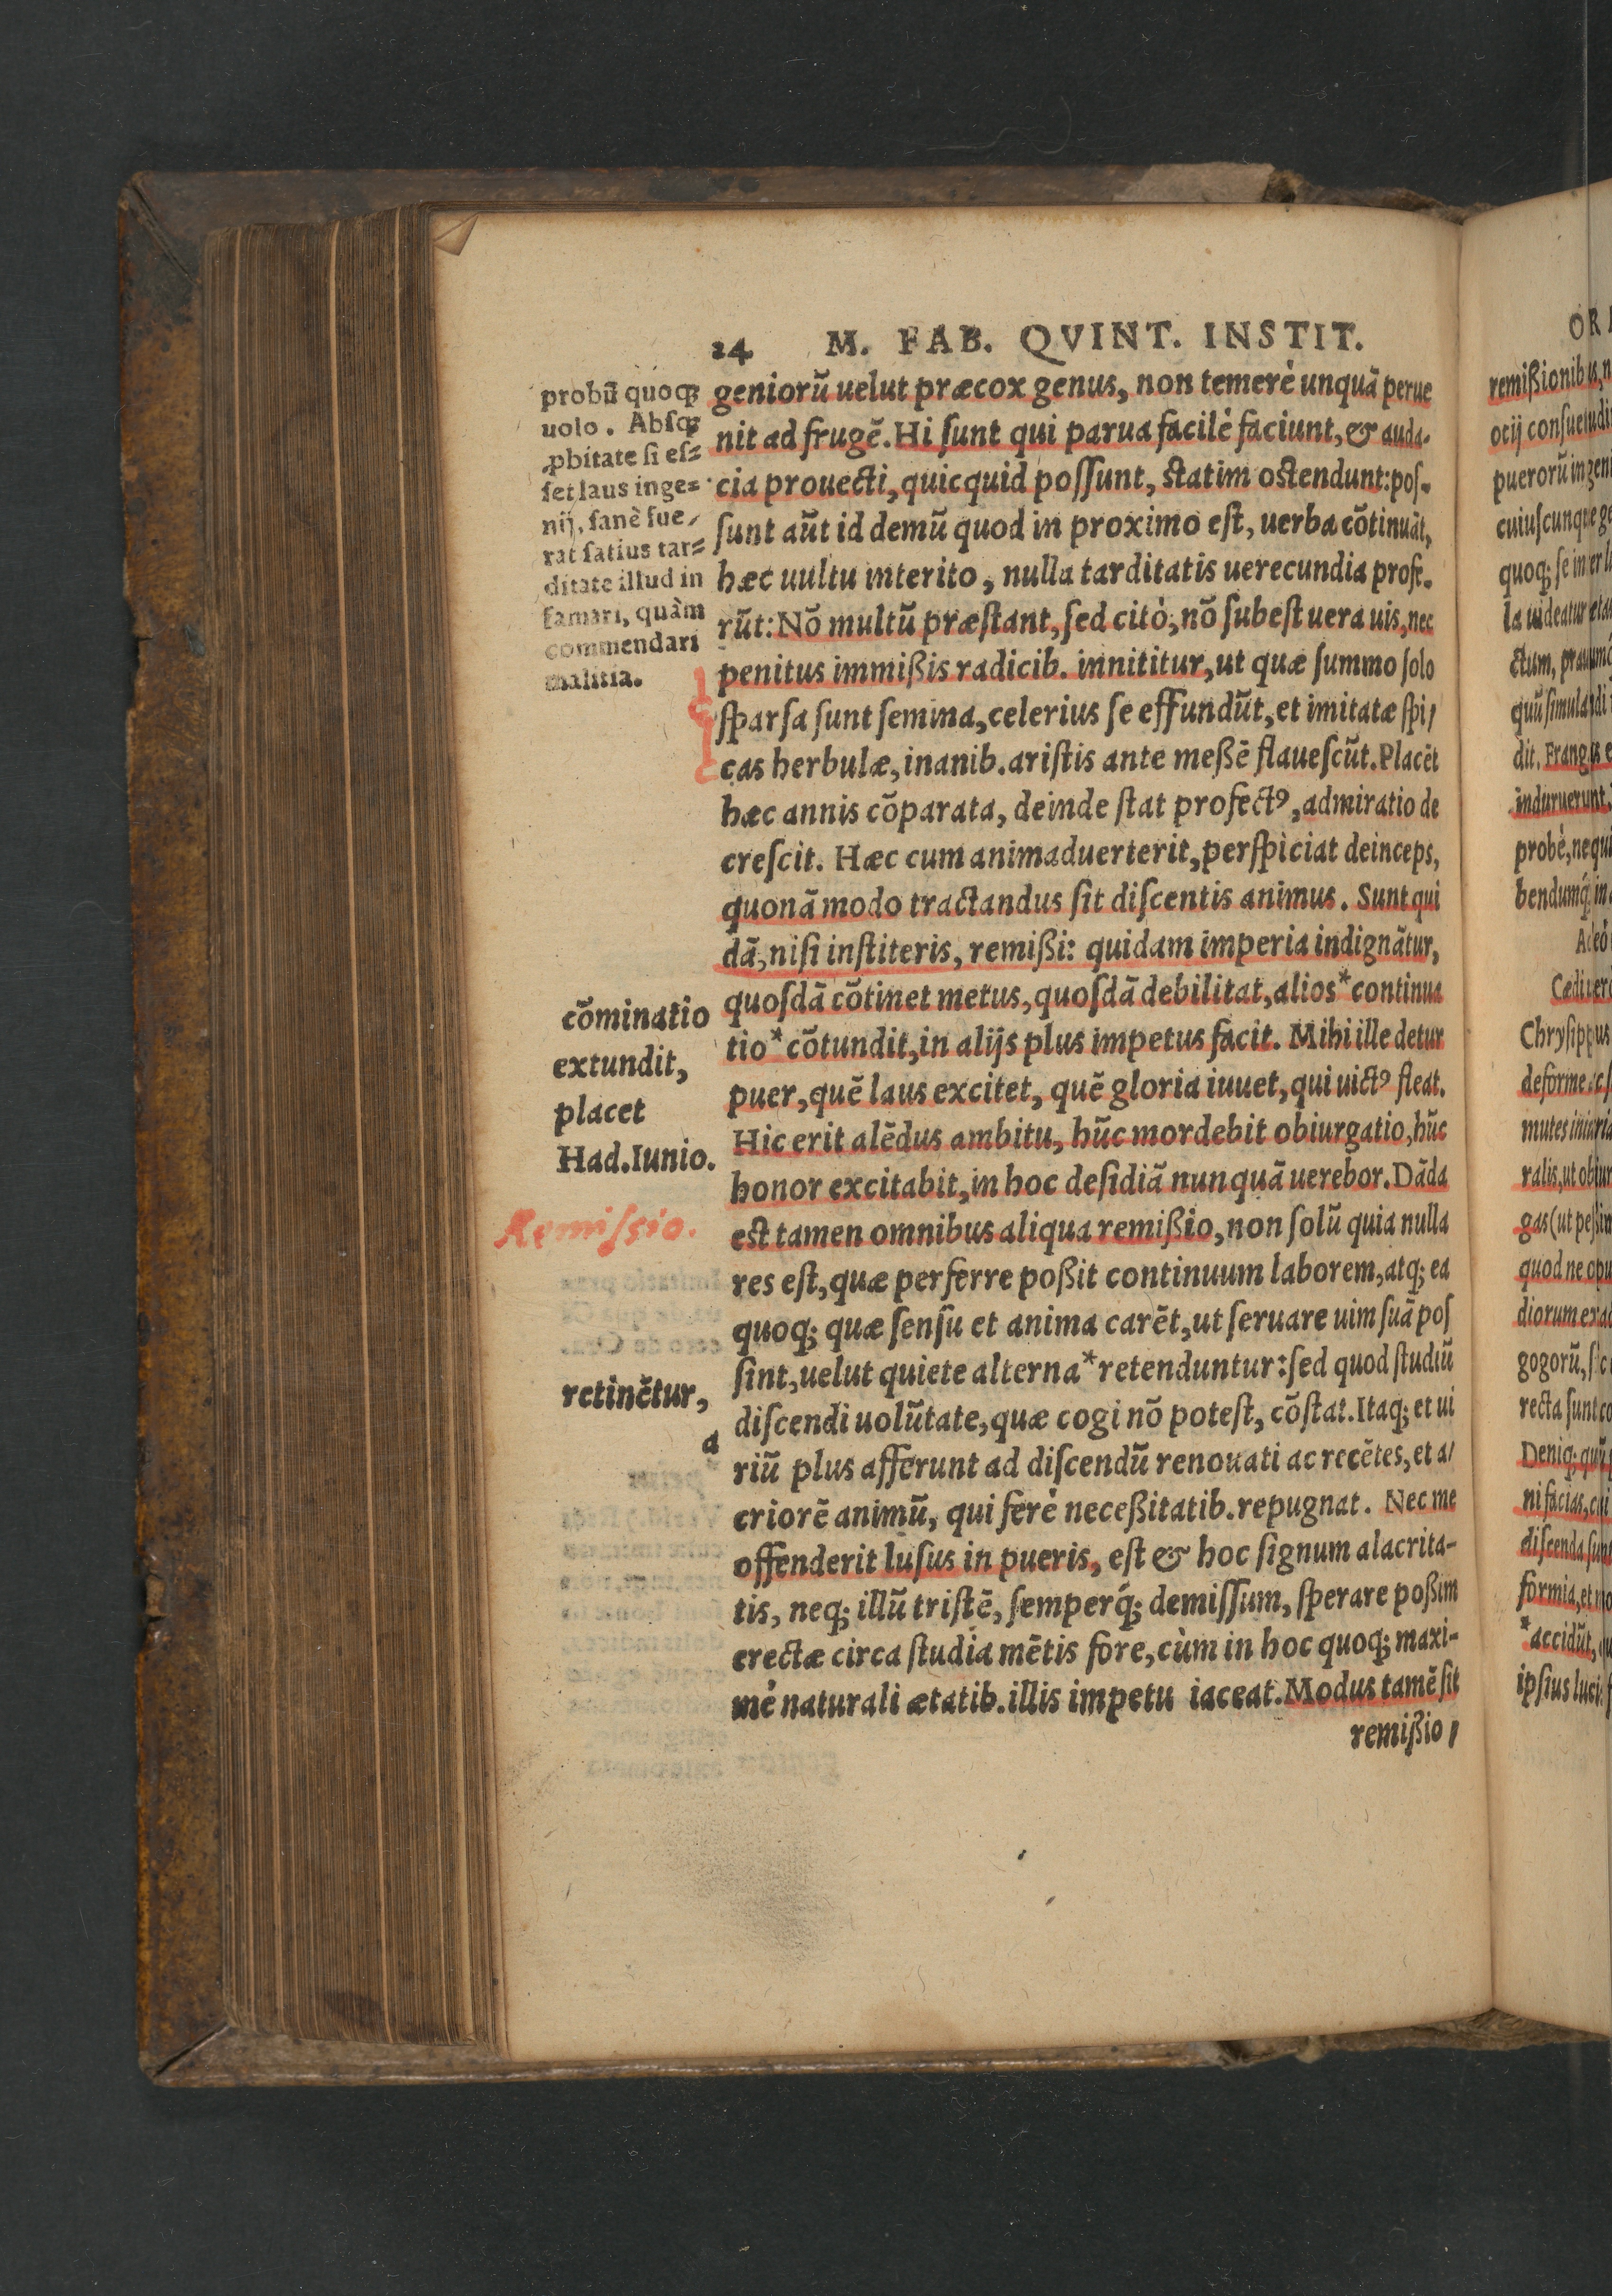 24 M. FAB. QVINT. INSTIT.
probū quoq;
uolo. Absq;
ꝓbitate si es=
set laus inge=
nij, sanè fue/
rat satius tar=
ditate illud in
famari, quàm
commendari
malitia.
geniorū uelut præcox genus, non temerè unquā perue
nit ad frugē. Hi ſunt qui parua facilè faciunt, & auda-
cia prouecti, quicquid poſſunt, ſtatim oſtendunt: poſ-
ſunt aūt id demū quod in proximo eſt, uerba cōtinuāt,
hæc uultu interito, nulla tarditatis uerecundia profe-
rūt: Nō multū præſtant, ſed citò, nō ſubeſt uera uis, nec
penitus immißis radicib. innititur, ut quæ ſummo ſolo
ſparſa ſunt ſemina, celerius ſe effundūt, et imitatæ ſpi/
cas herbulæ, inanib. ariſtis ante meßē flaueſcūt. Placēt
hæc annis cōparata, deinde ſtat profectꝰ, admiratio de
creſcit. Hæc cum animaduerterit, perſpiciat deinceps,
quonā modo tractandus ſit diſcentis animus. Sunt qui
dā, niſi inſtiteris, remißi: quidam imperia indignātur,
quoſdā cōtinet metus, quoſdā debilitat, alios* continua
tio* cōtundit, in alijs plus impetus facit. Mihi ille detur
puer, quē laus excitet, quē gloria iuuet, qui uictꝰ fleat.
Hic erit alēdus ambitu, hūc mordebit obiurgatio, hūc
honor excitabit, in hoc deſidiā nunquā uerebor. Dāda
eſt tamen omnibus aliqua remißio, non ſolū quia nulla
res eſt, quæ perferre poßit continuum laborem, atq; ea
quoq; quæ ſenſu et anima carēt, ut ſeruare uim ſuā poſ
ſint, uelut quiete alterna* retenduntur: ſed quod ſtudiū
diſcendi uolūtate, quæ cogi nō poteſt, cōſtat. Itaq; et ui
riū plus afferunt ad diſcendū renouati ac recētes, et a/
criorē animū, qui ferè neceßitatib. repugnat. Nec me
offenderit luſus in pueris, eſt & hoc ſignum alacrita-
tis, neq; illū triſtē, ſemperq́; demiſſum, ſperare poßim
erectæ circa ſtudia mētis fore, cùm in hoc quoq; maxi-
mè naturali ætatib. illis impetu iaceat. Modus tamē ſit
remißio/
cōminatio
extundit,
placet
Had. Iunio.
Remiſsio.
retinētur,
a